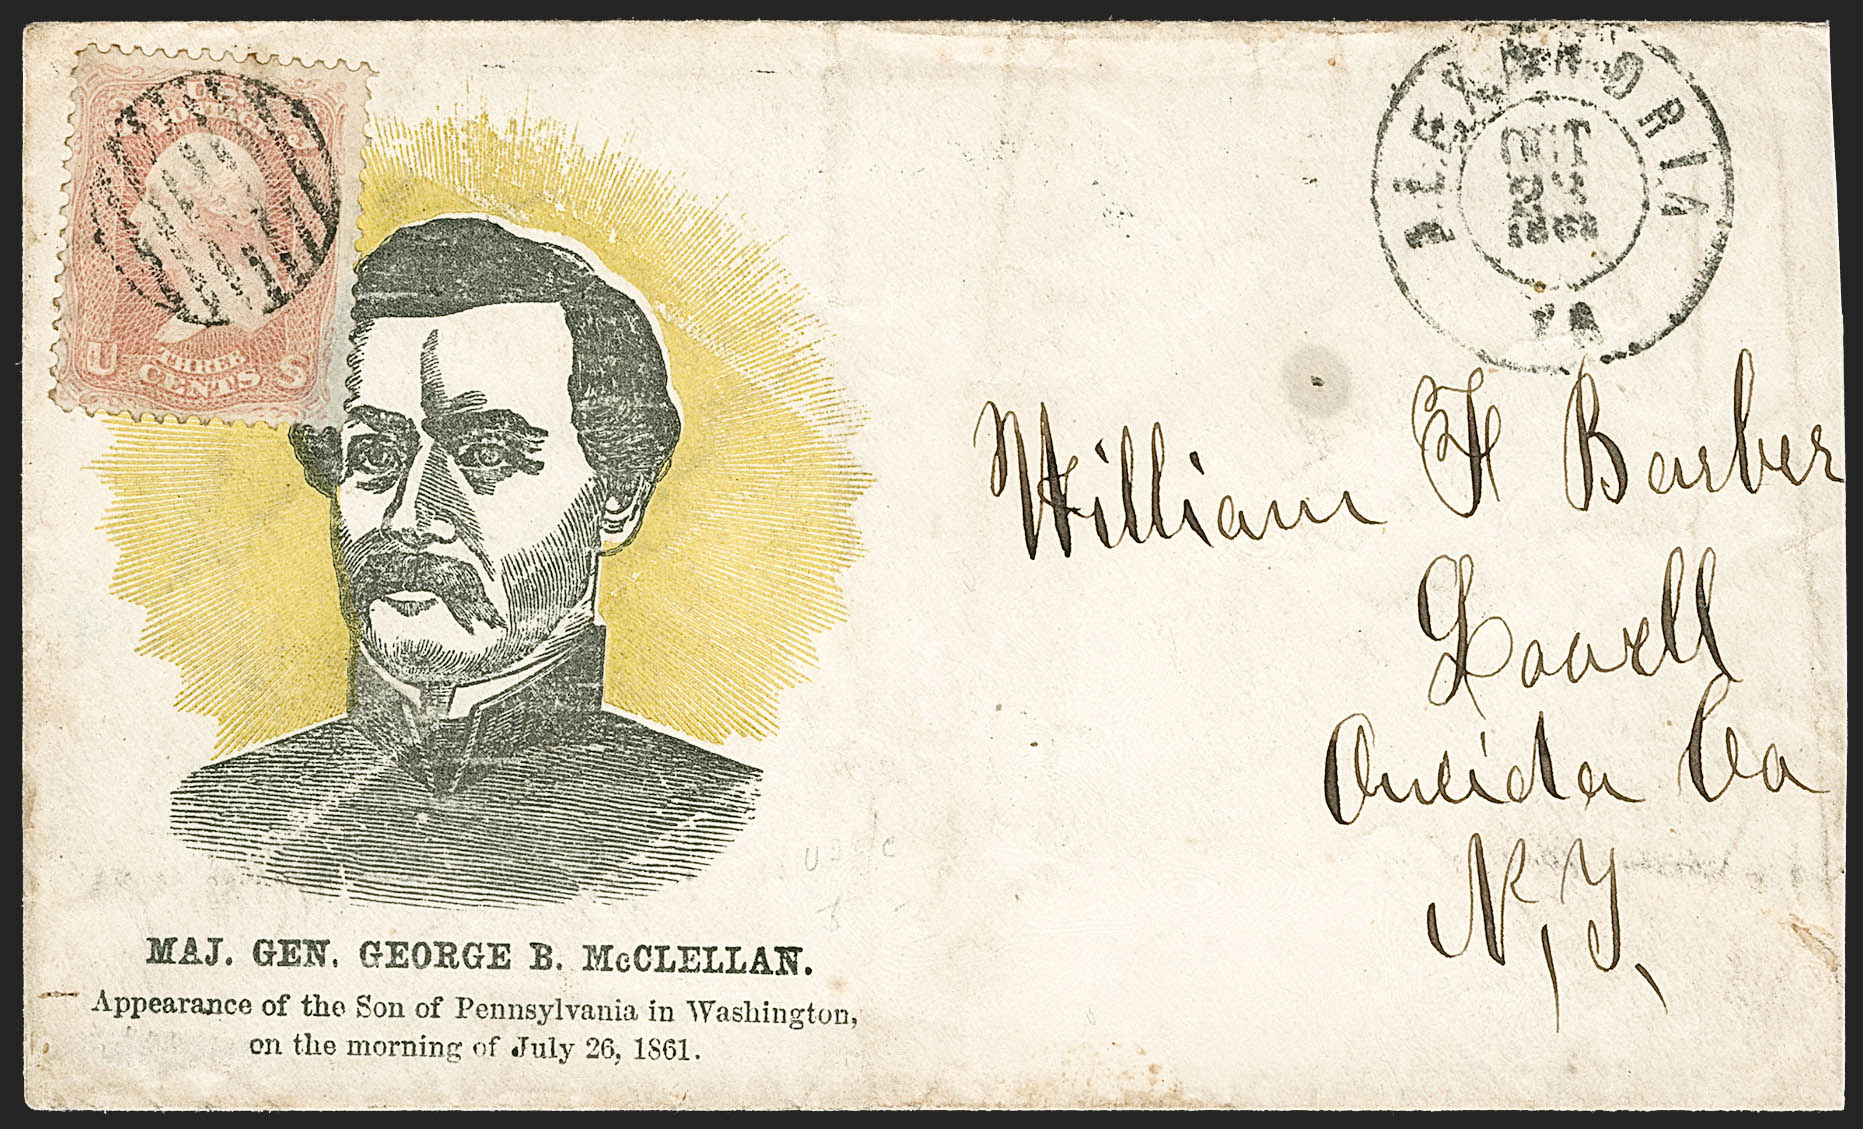 U.S.
POSTAGE
U S
THREE
CENTS
ALEXANDRIA
OCT
VA
William F Barber
Lowell
Oneida Co
N, Y,
MAJ. GEN. GEORGE B. McCLELLAN.
Appearance of the Son of Pennsylvania in Washington,
on the morning of July 26, 1861.